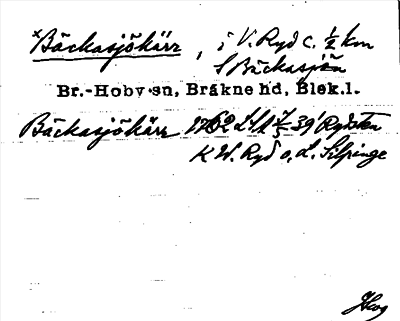 ×Bäckasjökärr, i V. Ryd c. ½ km
S Bäckasjön
Br.-Hoby sn, Bräkne hd, Blek.l.
Bäckasjökärr 1762 39 Rydsten
K W. Ryd o. L. Silpinge